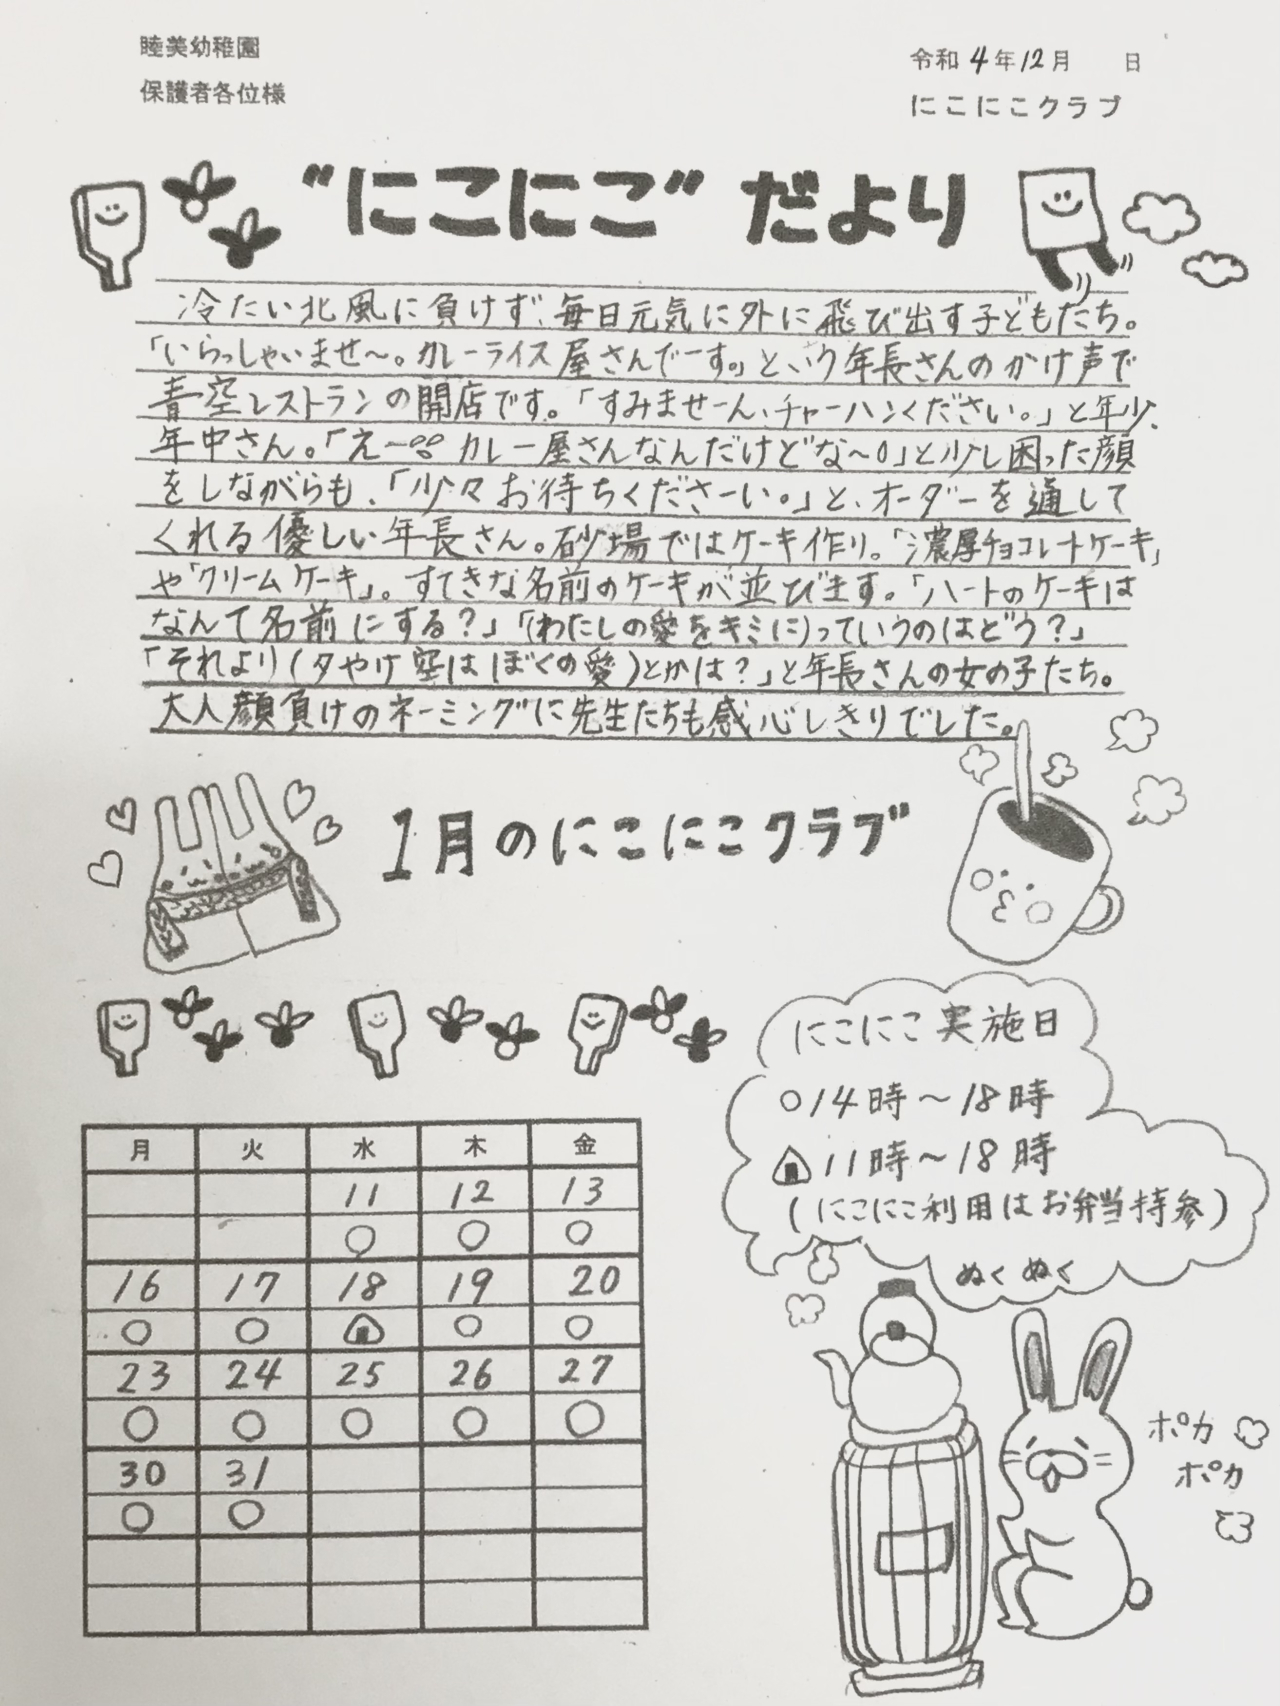 睦美幼稚園
保護者各位様
令和4年12月　日
にこにこクラブ
"にこにこ"だより
冷たい北風に負けず、毎日元気に外に飛び出す子どもたち。
「いらっしゃいませ〜。カレーライス屋さんでーす。」という年長さんのかけ声で
青空レストランの開店です。「すみませーん、チャーハンください。」と年少、
年中さん。「え〜°° カレー屋さんなんだけどな〜。」と少し困った顔
をしながらも、「少々お待ちくださーい。」と、オーダーを通して
くれる優しい年長さん。砂場ではケーキ作り。「濃厚チョコレートケーキ」
や「クリームケーキ」。すてきな名前のケーキが並びます。「ハートのケーキは
なんて名前にする?」「(わたしの愛をキミに)っていうのはどう?」
「それより(夕やけ空はぼくの愛)とかは?」と年長さんの女の子たち。
大人顔負けのネーミングに先生たちも感心しきりでした。
1月のにこにこクラブ
にこにこ実施日
○14時〜18時
🍙11時〜18時
(にこにこ利用はお弁当持参)
ぬくぬく
ポカ
ポカ
月 火 水 木 金
11 12 13
○ ○ ○
16 17 18 19 20
○ ○ 🍙 ○ ○
23 24 25 26 27
○ ○ ○ ○ ○
30 31
○ ○